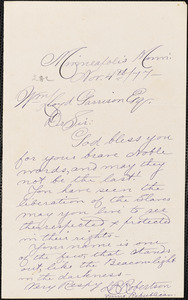 Minneapolis Minn:
Nov. 4th/77
Wm Lloyd Garrison Esq—
D. Sir:
God bless you
for your brave Noble
words, and may they
not be the last.
You have seen the
liberation of the Slaves
may you live to see
them respected & protected
in their rights—
Your name is one
of the few that stands
out, like the Beacon light
in the darkness.
Very Respy
Robertson